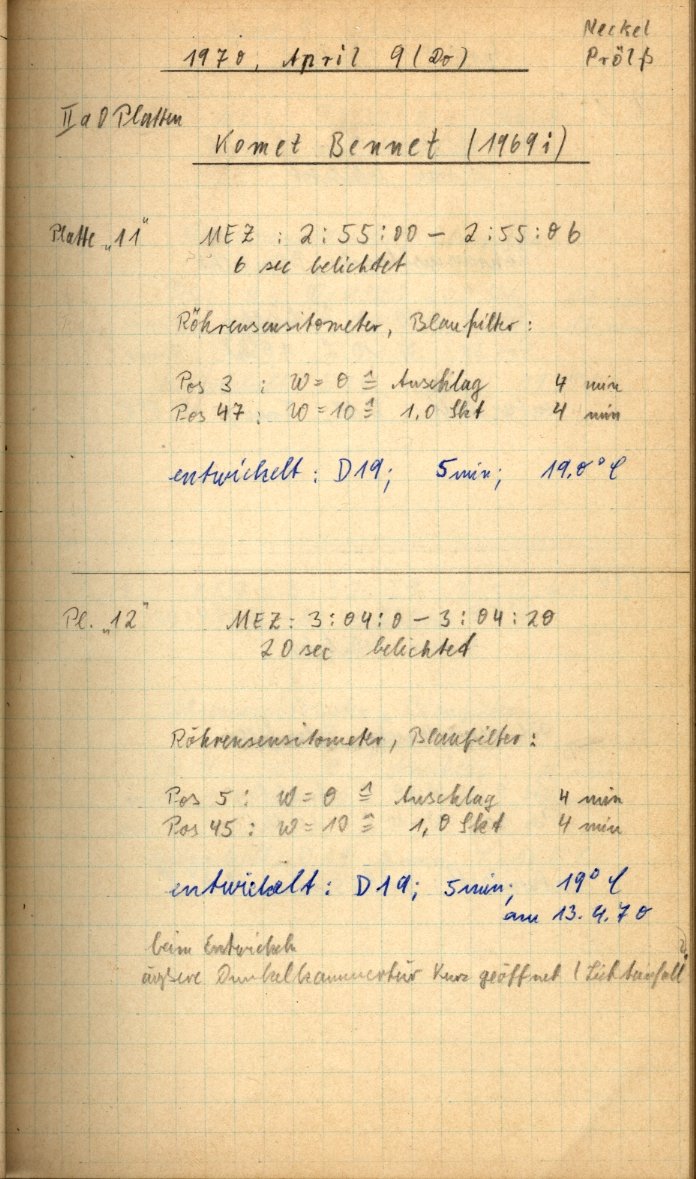 Neckel
1970, April 9 (Do)
Prölß
II a O Platten
Komet Bennet (1969i)
Platte „11" MEZ : 2:55:00 – 2:55:06
6 sec belichtet
Röhrensensitometer, Blaufilter:
Pos 3 : W = 0 ≙ Anschlag 4 min
Pos 47 : W = 10 ≙ 1,0 Skt 4 min
entwickelt : D19; 5 min; 19,0° C
Pl. „12" MEZ : 3:04:0 – 3:04:20
20 sec belichtet
Röhrensensitometer, Blaufilter :
Pos 5 : W = 0 ≙ Anschlag 4 min
Pos 45 : W = 10 ≙ 1,0 Skt 4 min
entwickelt : D19; 5 min; 19° C
am 13.4.70
beim Entwickeln
äußere Dunkelkammertür kurz geöffnet (Lichteinfall